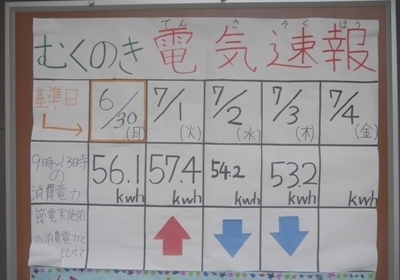 むくのき 電気速報
でん き そく ほう
基準日 6/30(月) 7/1(火) 7/2(水) 7/3(木) 7/4(金)
9時~13時の消費電力 56.1kwh 57.4kwh 54.2kwh 53.2kwh kwh
節電実施前の消費電力と比べて